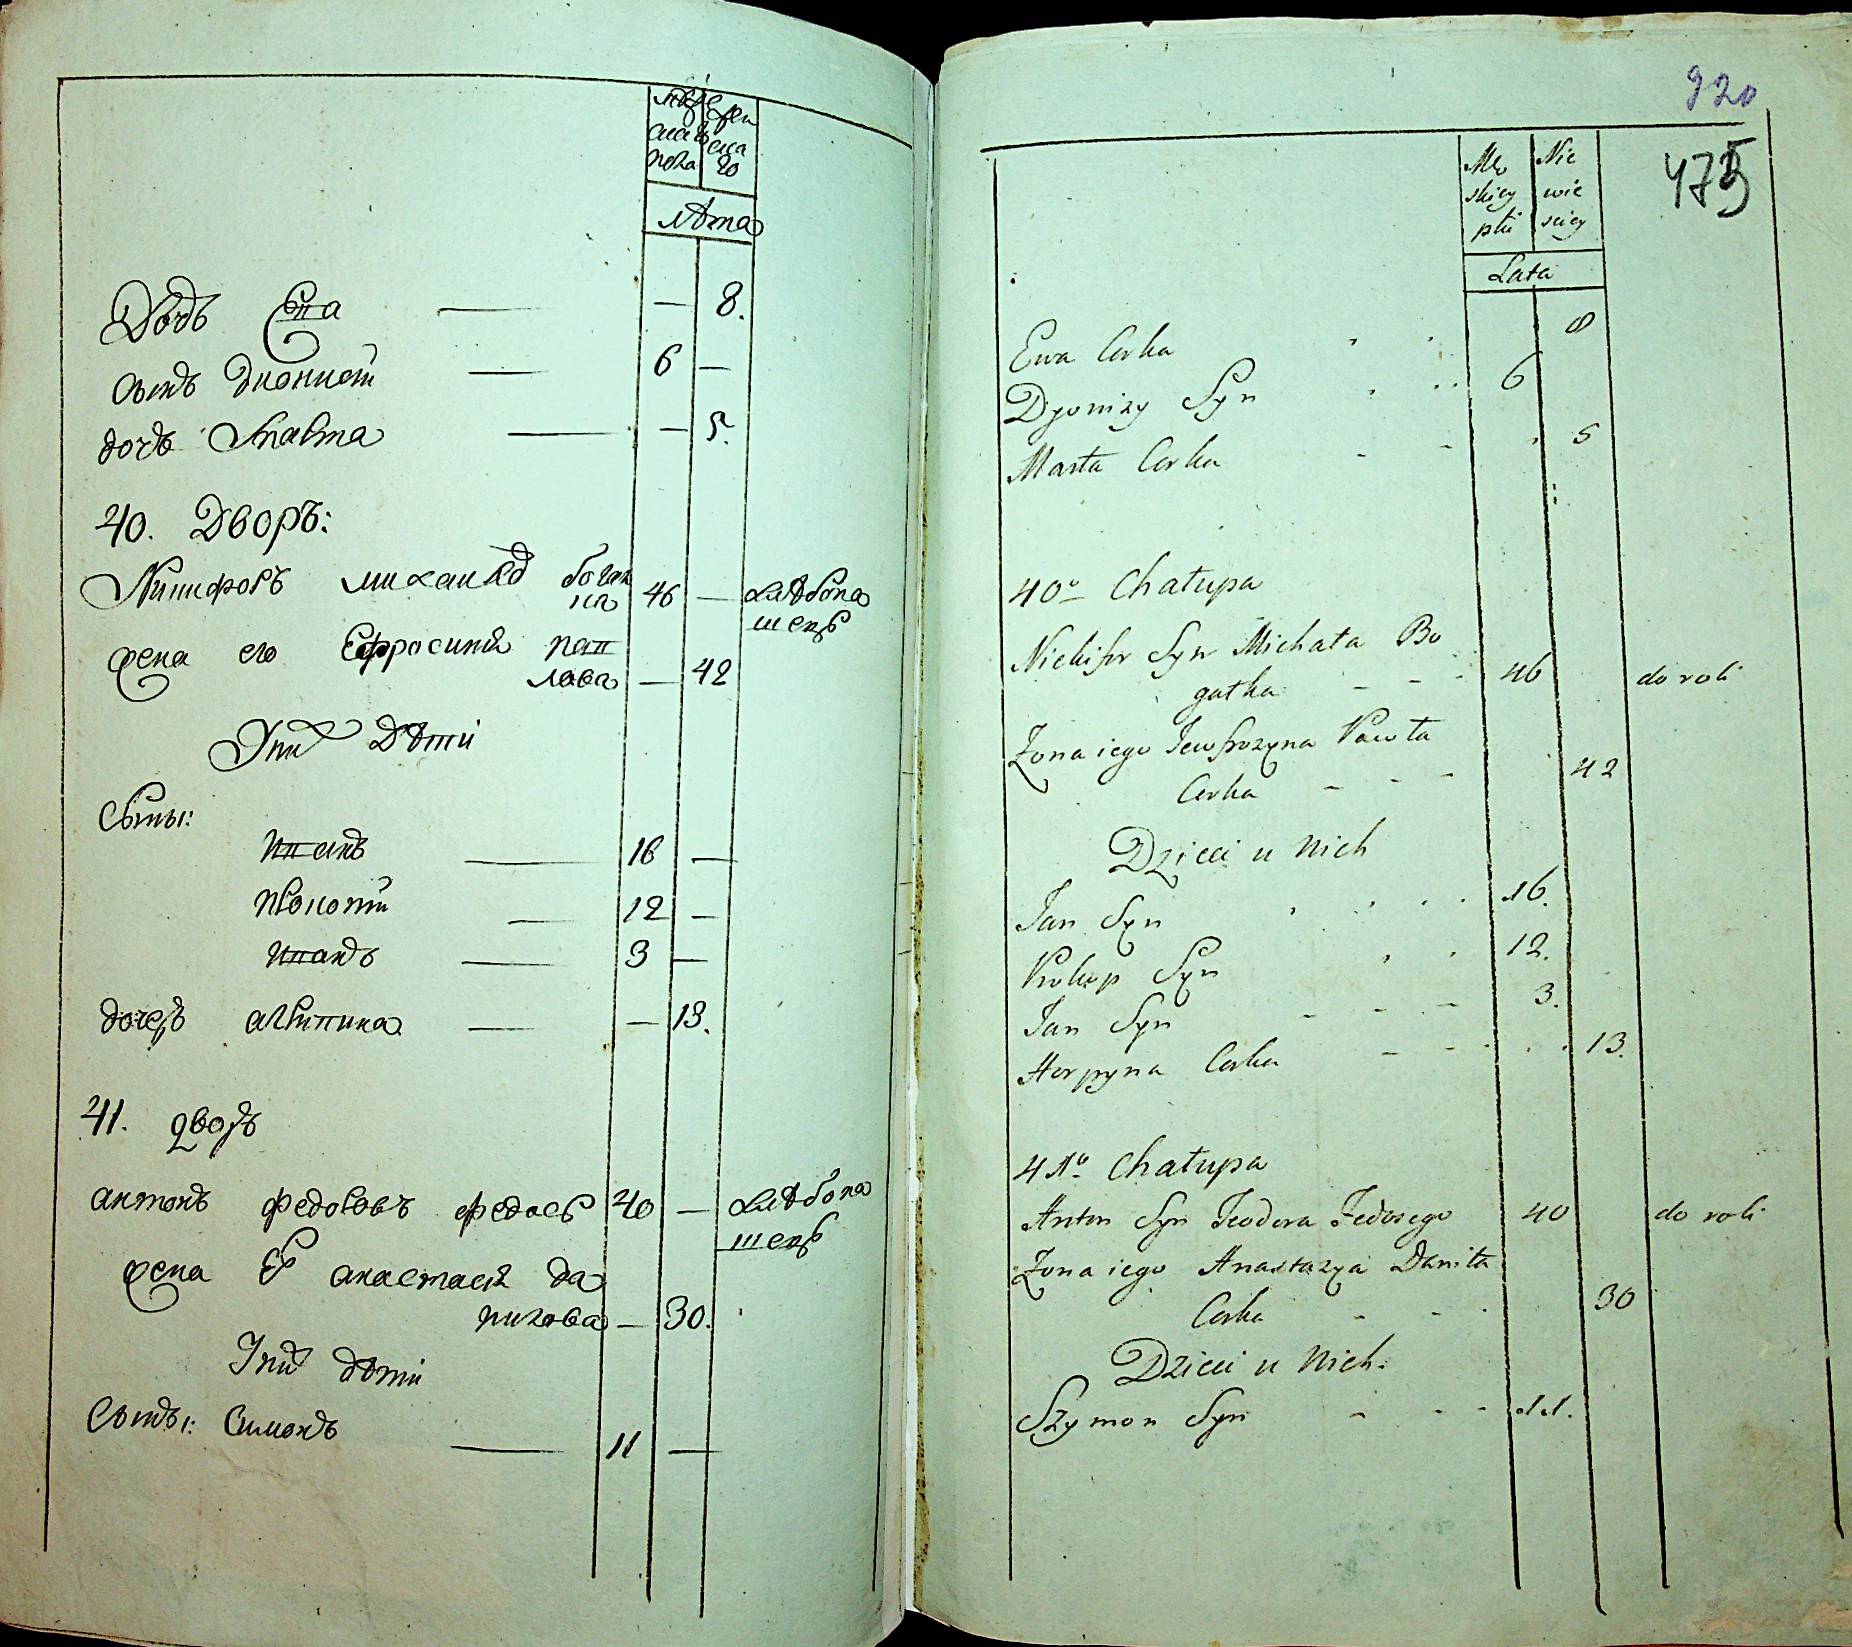 Лѣта
Дочь Ева — — 8.
сынъ Дионисій — 6 —
дочь Марта — — 5.
40. Дворъ:
Никифоръ михайловъ богат
ка 46 — хлѣбопа
шецъ
жена его Ефросинія пав
лова — 42
У них Дѣти
Сыны:
Иванъ — 16 —
Прокопій — 12 —
Иванъ — 3 —
дочерь агрипина — — 13.
41. дворъ
антонъ федоровъ федосъ 40 — хлѣбопа
шецъ
жена его анастасія да
нилова — 30.
У них дѣти
Сыны: Симонъ — 11 —
920
475
Mę Nie
skiey wie
płci sciey
Lata
Ewa Corka 8
Dyonizy Syn 6
Marta Corka 5
40o Chałupa
Nickifor Syn Michała Bo
gatka 46 do roli
Zona iego Jewfrozyna Pawła
Corka 42
Dzieci u nich
Jan Syn 16.
Prokop Syn 12.
Jan Syn 3.
Harpyna Corka 13.
41o Chałupa
Anton Syn Teodora Fedosego 40 do roli
Zona iego Anastazya Daniła
Corka 30
Dzieci u nich.
Szymon Syn 11.